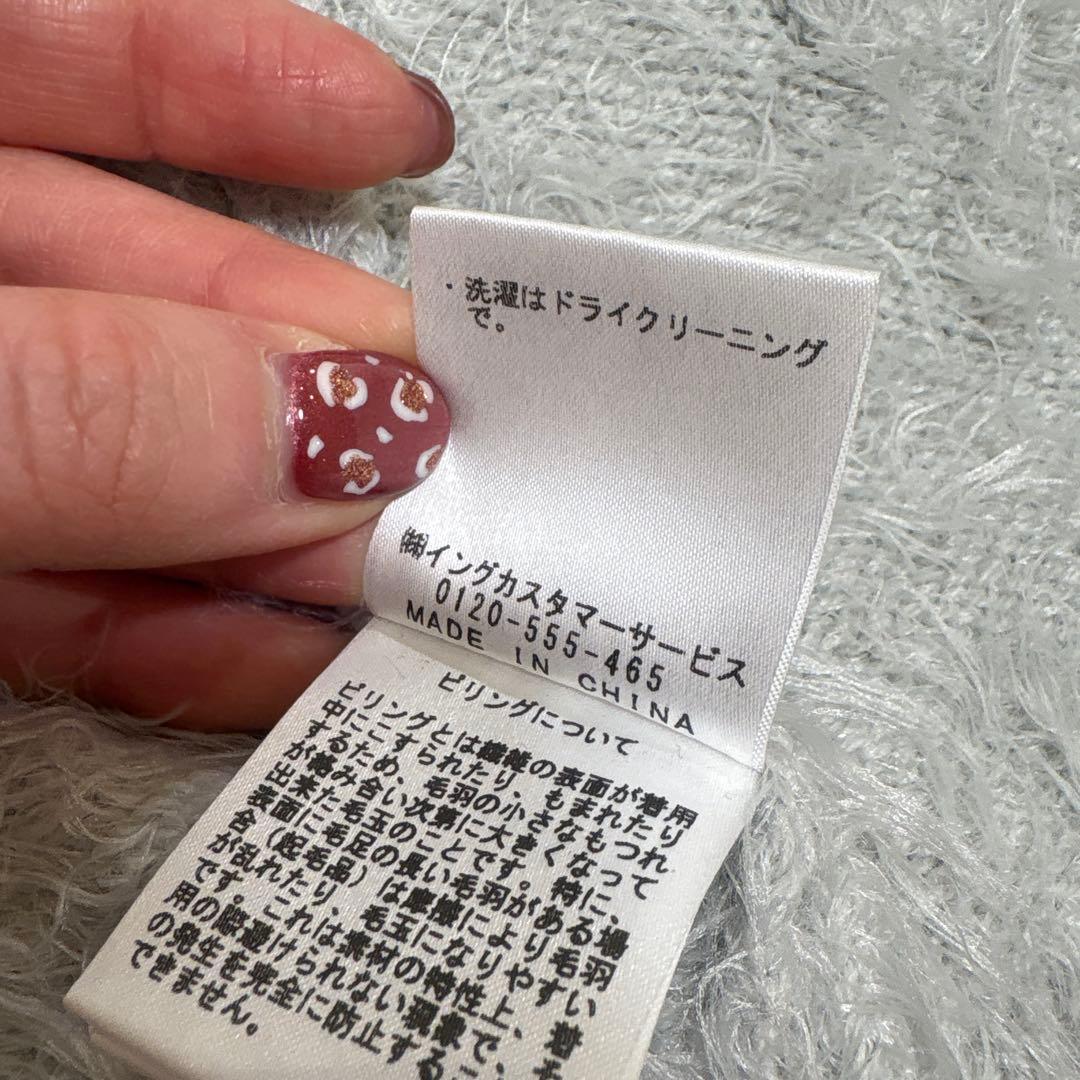 ・洗濯はドライクリーニング
で。
㈱イングカスタマーサービス
0120-555-465
MADE IN CHINA
ピリングについて
ピリングとは繊維の表面が着用
中にこすられたり、もまれたり
するため、毛羽の小さなもつれ
が絡み合い次第に大きくなって
出来た毛玉のことです。特に、
表面に毛足の長い毛羽がある場
合（起毛品）は摩擦により毛羽
が乱れたり、毛玉になりやすい
です。これは素材の特性上、着
用の際避けられない現象で、
の発生を完全に防止する
できません。